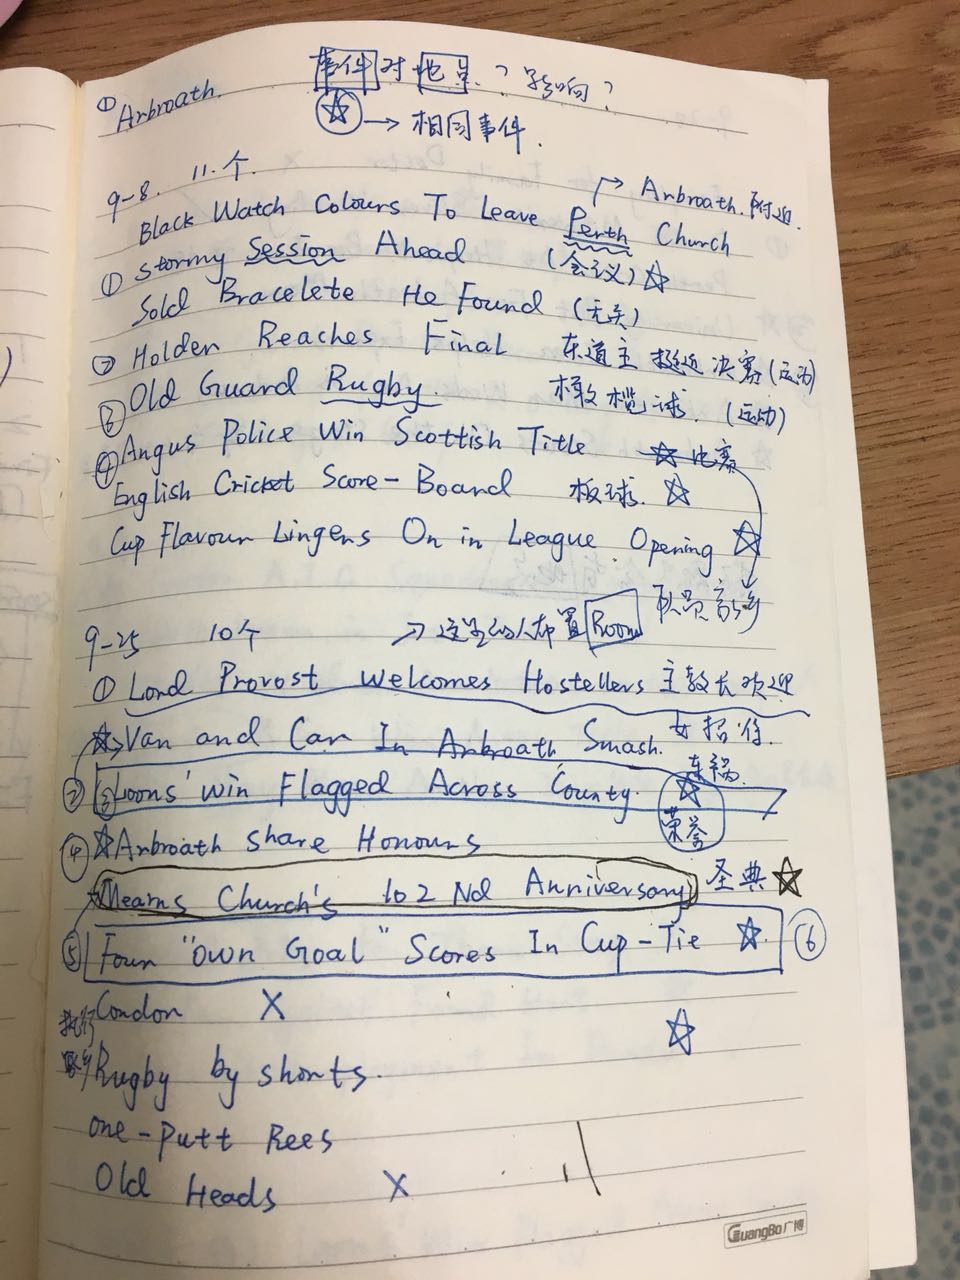 ① Arbroath. 事件对地点？影响？
☆ → 相同事件.
9-8. 11.个.
→ Arbroath.附近
Black Watch Colours To Leave Perth Church
① Stormy Session Ahead (会议) ☆
Sold Bracelete He Found (无关)
② Holden Reaches Final 东道主 挺近决赛(运动)
③ Old Guard Rugby. 橄榄球. (运动)
④ Angus Police Win Scottish Title ☆ 比赛
English Cricket Score-Board 板球. ☆
Cup Flavour Lingers On in League Opening ☆
队员
9-25 10个 → 布置 Room
① Lord Provost Welcomes Hostellers 主教长欢迎
☆→Van and Car In Arbroath Smash. 女招待.
车祸.
② ③ Loons' win Flagged Across County. ☆
荣誉
④ ☆ Arbroath share Honours
Mearns Church's 102 Nd Anniversary 圣典 ☆
⑤ Four "own Goal" Scores In Cup-Tie ☆. ⑥
London X
☆
Rugby by shorts.
one-putt Rees
Old Heads X
GuangBo广博